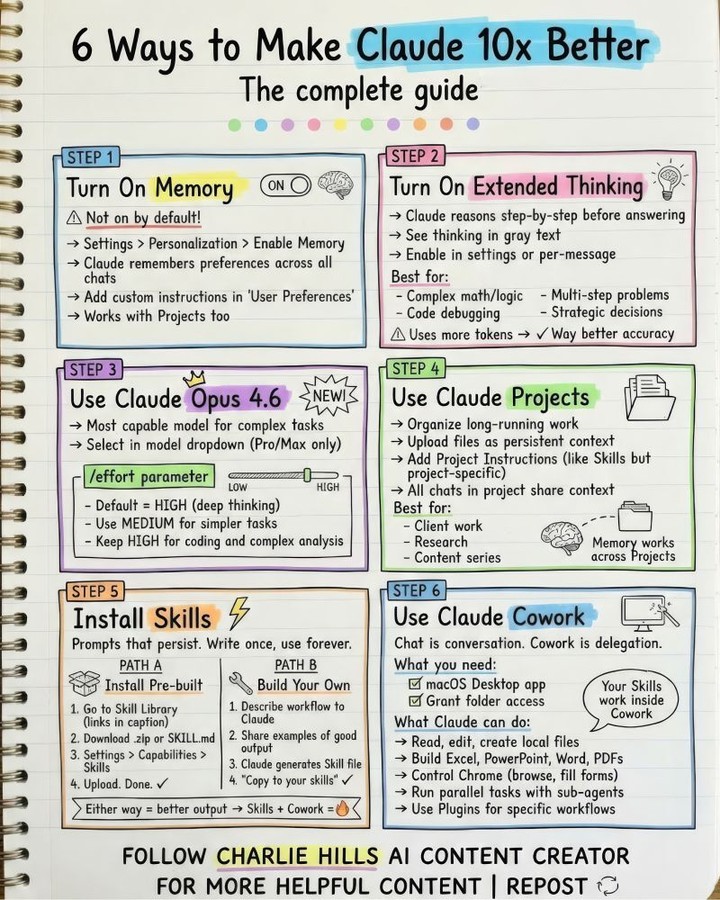 6 Ways to Make Claude 10x Better
The complete guide
STEP 1
Turn On Memory
ON
⚠ Not on by default!
→ Settings > Personalization > Enable Memory
→ Claude remembers preferences across all
chats
→ Add custom instructions in 'User Preferences'
→ Works with Projects too
STEP 2
Turn On Extended Thinking
→ Claude reasons step-by-step before answering
→ See thinking in gray text
→ Enable in settings or per-message
Best for:
- Complex math/logic
- Code debugging
- Multi-step problems
- Strategic decisions
⚠ Uses more tokens → ✓ Way better accuracy
STEP 3
Use Claude Opus 4.6
NEW!
→ Most capable model for complex tasks
→ Select in model dropdown (Pro/Max only)
/effort parameter
LOW
HIGH
- Default = HIGH (deep thinking)
- Use MEDIUM for simpler tasks
- Keep HIGH for coding and complex analysis
STEP 4
Use Claude Projects
→ Organize long-running work
→ Upload files as persistent context
→ Add Project Instructions (like Skills but
project-specific)
→ All chats in project share context
Best for:
- Client work
- Research
- Content series
Memory works
across Projects
STEP 5
Install Skills
Prompts that persist. Write once, use forever.
PATH A
Install Pre-built
1. Go to Skill Library
(links in caption)
2. Download .zip or SKILL.md
3. Settings > Capabilities >
Skills
4. Upload. Done. ✓
PATH B
Build Your Own
1. Describe workflow to
Claude
2. Share examples of good
output
3. Claude generates Skill file
4. "Copy to your skills" ✓
Either way = better output → Skills + Cowork = 🔥
STEP 6
Use Claude Cowork
Chat is conversation. Cowork is delegation.
What you need:
☑ macOS Desktop app
☑ Grant folder access
Your Skills
work inside
Cowork
What Claude can do:
→ Read, edit, create local files
→ Build Excel, PowerPoint, Word, PDFs
→ Control Chrome (browse, fill forms)
→ Run parallel tasks with sub-agents
→ Use Plugins for specific workflows
FOLLOW CHARLIE HILLS AI CONTENT CREATOR
FOR MORE HELPFUL CONTENT | REPOST